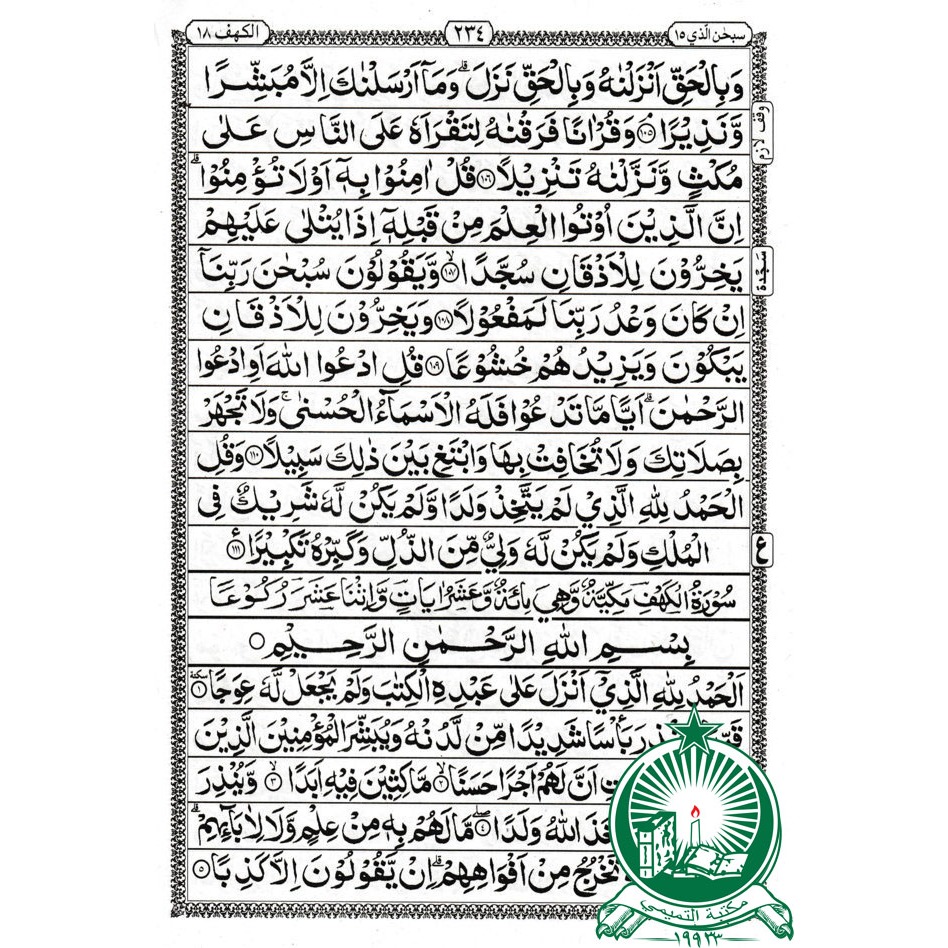 سبحٰن الّذي ١٥
٢٣٤
الكهف ١٨
وَبِالْحَقِّ اَنْزَلْنٰهُ وَبِالْحَقِّ نَزَلَ ؕ وَمَآ اَرْسَلْنٰكَ اِلَّا مُبَشِّرًا
وَّنَذِيْرًا ۝١٠٥ وَقُرْاٰنًا فَرَقْنٰهُ لِتَقْرَاَهٗ عَلَى النَّاسِ عَلٰى
مُكْثٍ وَّنَزَّلْنٰهُ تَنْزِيْلًا ۝١٠٦ قُلْ اٰمِنُوْا بِهٖٓ اَوْ لَا تُؤْمِنُوْا ؕ
اِنَّ الَّذِيْنَ اُوْتُوا الْعِلْمَ مِنْ قَبْلِهٖٓ اِذَا يُتْلٰى عَلَيْهِمْ
يَخِرُّوْنَ لِلْاَذْقَانِ سُجَّدًا ۝١٠٧ۙ وَّيَقُوْلُوْنَ سُبْحٰنَ رَبِّنَآ
اِنْ كَانَ وَعْدُ رَبِّنَا لَمَفْعُوْلًا ۝١٠٨ وَيَخِرُّوْنَ لِلْاَذْقَانِ
يَبْكُوْنَ وَيَزِيْدُهُمْ خُشُوْعًا ۝١٠٩ قُلِ ادْعُوا اللّٰهَ اَوِ ادْعُوا
الرَّحْمٰنَ ؕ اَيًّا مَّا تَدْعُوْا فَلَهُ الْاَسْمَآءُ الْحُسْنٰى ۚ وَلَا تَجْهَرْ
بِصَلَاتِكَ وَلَا تُخَافِتْ بِهَا وَابْتَغِ بَيْنَ ذٰلِكَ سَبِيْلًا ۝١١٠ وَقُلِ
الْحَمْدُ لِلّٰهِ الَّذِيْ لَمْ يَتَّخِذْ وَلَدًا وَّلَمْ يَكُنْ لَّهٗ شَرِيْكٌ فِي
الْمُلْكِ وَلَمْ يَكُنْ لَّهٗ وَلِيٌّ مِّنَ الذُّلِّ وَكَبِّرْهُ تَكْبِيْرًا ۝١١١
سُوْرَةُ الْكَهْفِ مَكِّيَّةٌ وَّهِيَ مِائَةٌ وَّعَشْرُ اٰيَاتٍ وَّاثْنَا عَشَرَ رُكُوْعًا
بِسْمِ اللّٰهِ الرَّحْمٰنِ الرَّحِيْمِ
اَلْحَمْدُ لِلّٰهِ الَّذِيْٓ اَنْزَلَ عَلٰى عَبْدِهِ الْكِتٰبَ وَلَمْ يَجْعَلْ لَّهٗ عِوَجًا ۝١ سكتة
بَاْسًا شَدِيْدًا مِّنْ لَّدُنْهُ وَيُبَشِّرَ الْمُؤْمِنِيْنَ الَّذِيْنَ
اَنَّ لَهُمْ اَجْرًا حَسَنًا ۝٢ۙ مَّاكِثِيْنَ فِيْهِ اَبَدًا ۝٣ۙ وَّيُنْذِرَ
اللّٰهُ وَلَدًا ۝٤ مَا لَهُمْ بِهٖ مِنْ عِلْمٍ وَّلَا لِاٰبَآئِهِمْ ؕ
تَخْرُجُ مِنْ اَفْوَاهِهِمْ ؕ اِنْ يَّقُوْلُوْنَ اِلَّا كَذِبًا ۝٥
وقف لازم
سَجدة
ع
مكتبة التميمي